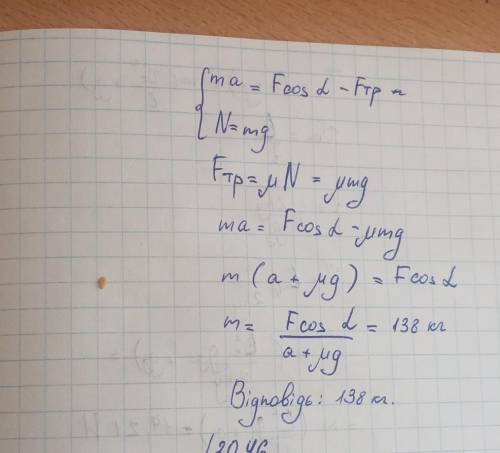 ma = Fcos α - Fтр
N = mg
Fтр = μN = μmg
ma = Fcos α - μmg
m (a + μg) = Fcos α
m = Fcos α / a + μg = 138 кг
Відповідь: 138 кг.